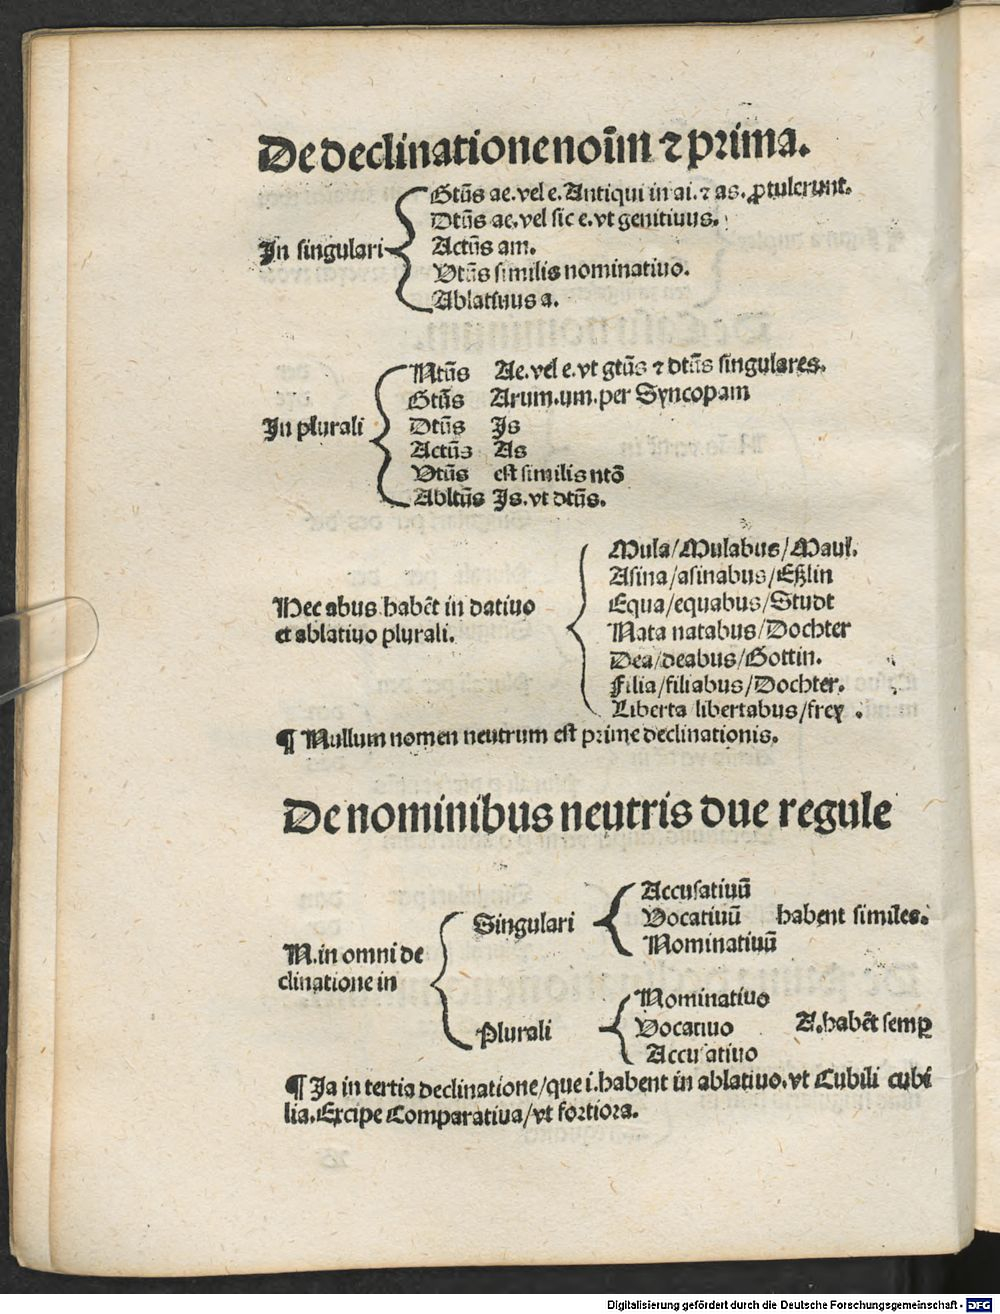 De declinatione noīm ⁊ prima.
In singulari
Gtūs ae. vel e. Antiqui in ai. ⁊ as. ꝓtulerunt.
Dtūs ae. vel sic e. vt genitiuus.
Actūs am.
Vtūs similis nominatiuo.
Ablatiuus a.
In plurali
Ntūs Ae. vel e. vt gtūs ⁊ dtūs singulares.
Gtūs Arum. um. per Syncopam
Dtūs Is
Actūs As
Vtūs est similis ntō
Abltūs Is. vt dtūs.
Hec abus habēt in datiuo
et ablatiuo plurali.
Mula/Mulabus/Maul.
Asina/asinabus/Eßlin
Equa/equabus/Studt
Nata natabus/Dochter
Dea/deabus/Gottin.
Filia/filiabus/Dochter.
Liberta libertabus/frey .
¶ Nullum nomen neutrum est prime declinationis.
De nominibus neutris due regule
N. in omni de
clinatione in
Singulari
Accusatiuū
Vocatiuū habent similes.
Nominatiuū
Plurali
Nominatiuo
Vocatiuo A. habēt semꝑ
Accusatiuo
¶ Ia in tertia declinatione/que i. habent in ablatiuo. vt Cubili cubi
lia. Excipe Comparatiua/vt fortiora.
Digitalisierung gefördert durch die Deutsche Forschungsgemeinschaft - DFG